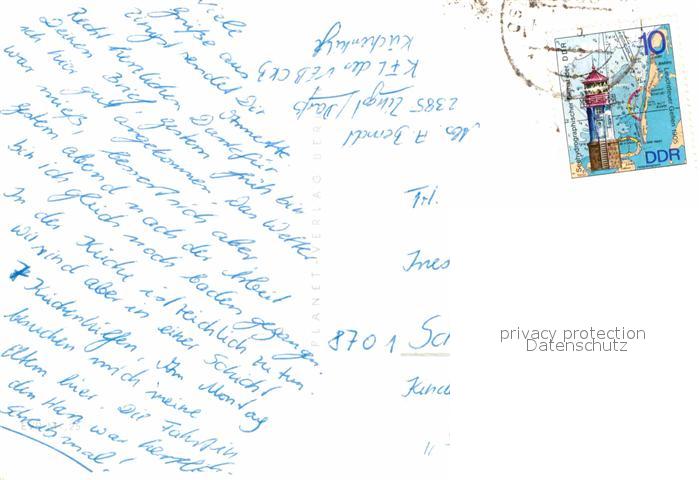 Viele
Grüße aus
Zingst sendet Dir Annette
Recht herzlichen Dank für
Deinen Brief. Gestern früh bin
ich hier gut angekommen. Das Wetter
war mies, besserte sich aber
gestern abend nach der Arbeit
bin ich gleich noch baden gegangen.
In der Küche ist reichlich zu tun.
wir sind aber in einer Schicht
7 Küchenhilfen. Am Montag
besuchen mich meine
Eltern hier. Die Fahrt in
den Harz war herrlich.
Schreib mal!
Abs. A. Berndt
2385 Zingst/Darß
KFL des VEB CKB
Küchenhilfe
PLANET-VERLAG BER
Frl.
Ines
8701 Sc
10
Seehydrographischer Dienst der DDR
Leuchtfeuer
DDR
privacy protection
Datenschutz